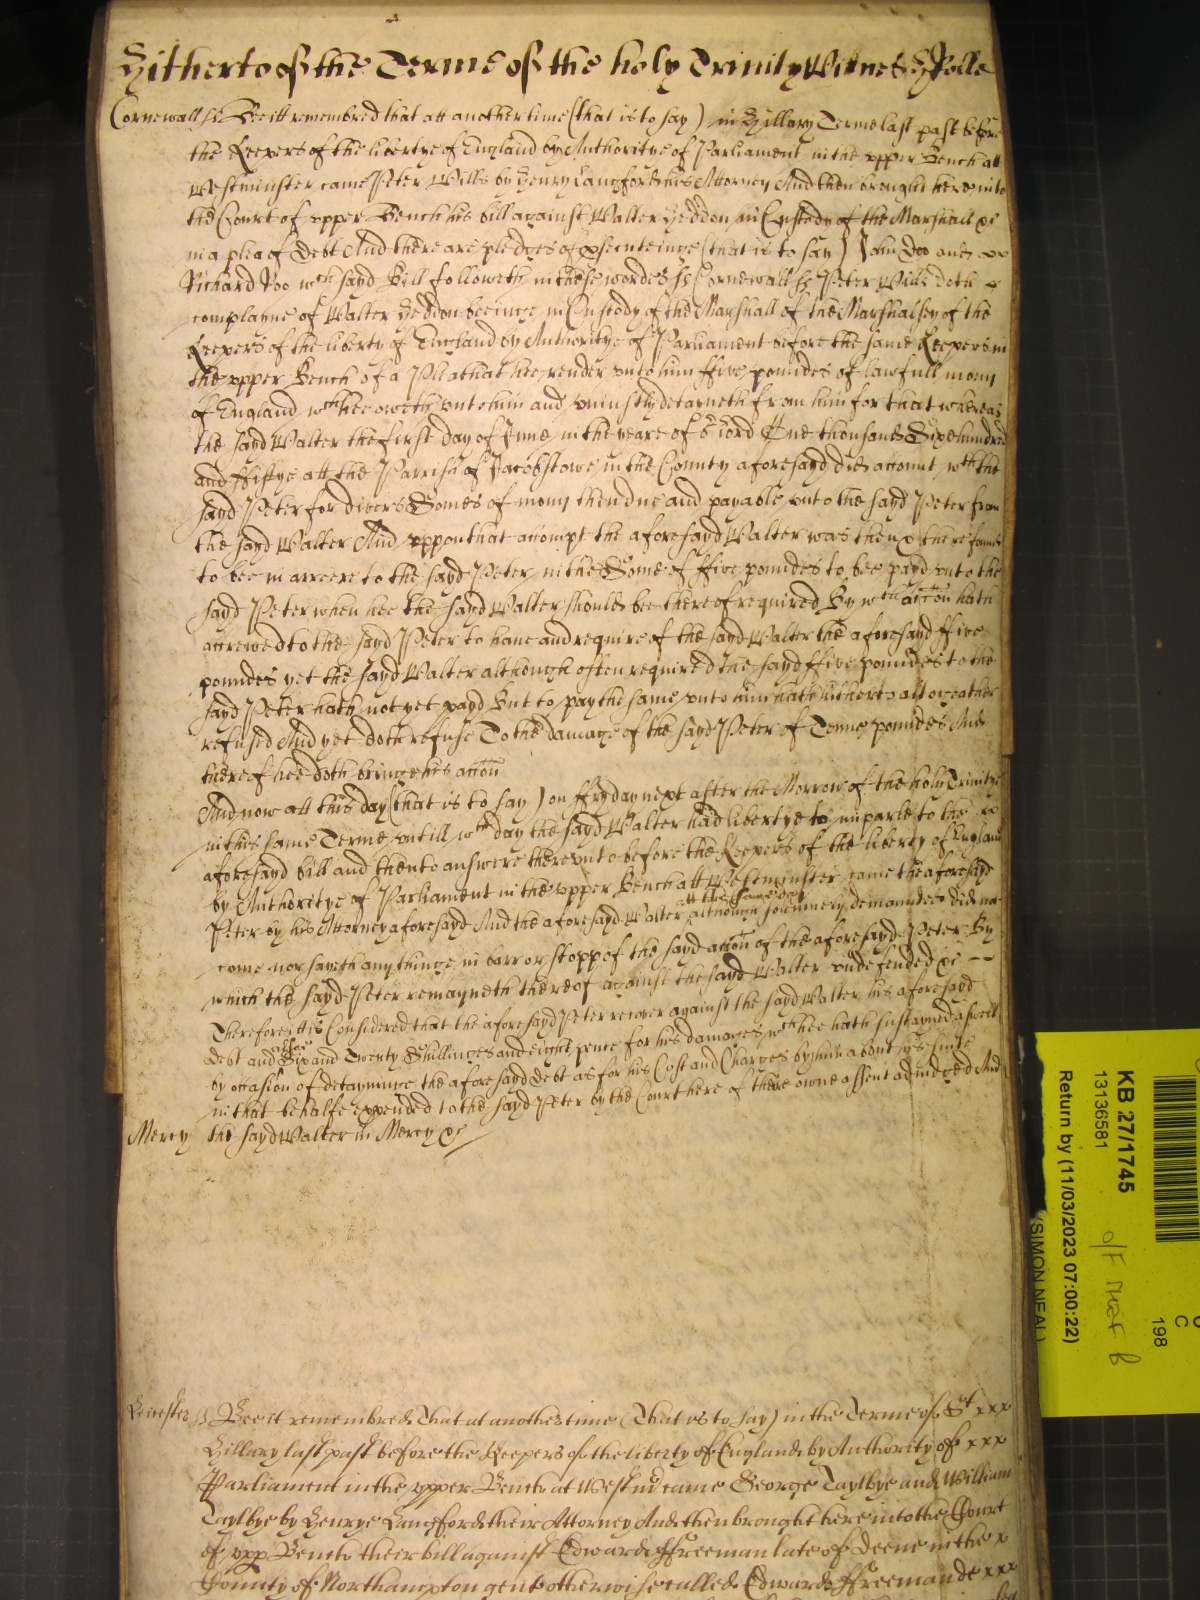 Hitherto of the Terme of the holy Trinity Witnes H Rolle
Cornewall ss Bee itt remembred that att another time (that is to say) in Hillary Terme last past before
the Keepers of the libertye of England by Authoritye of Parliament in the vpper Bench att
Westminster came Peter Wills by Henry Langford his Attorney And then brought here into
the Court of vpper Bench his bill against Walter Heddon in Custody of the Marshall &c
in a plea of Debt And there are pledges of prsecuteinge (that is to say) John Doo and
Richard Roo wch sayd Bill followeth in these wordes ss Cornewall ss Peter Wills doth
complayne of Walter Heddon beeinge in Custody of the Marshall of the Marshalsey of the
Keepers of the liberty of England by Authoritye of Parliament before the same Keepers in
the vpper Bench of a Plea that hee render vnto him ffive poundes of lawfull mony
of England wch hee oweth vnto him and vniustly detayneth from him for that whereas
the sayd Walter the first day of June in the yeare of or Lord One thousand Sixe hundred
and ffiftye att the Parrish of Jacobstowe in the County aforesayd did accomt wth the
sayd Peter for divers Somes of mony then due and payable vnto the sayd Peter from
the sayd Walter And vppon that accompt the aforesayd Walter was then & there found
to bee in arreere to the sayd Peter in the Some of ffive poundes to bee payd vnto the
sayd Peter when hee the sayd Walter should bee thereof required By wch accon hath
accrewed to the sayd Peter to haue and require of the sayd Walter the aforesayd ffive
poundes yet the sayd Walter although often required the sayd ffive poundes to the
sayd Peter hath not yet payd But to pay the same vnto him hath hitherto altogeather
refused And yet doth refuse To the damage of the sayd Peter of Tenne poundes And
thereof hee doth bringe his accon
And now att this day (that is to say) on ffryday next after the Morrow of the holy Trinitye
in this same Terme vntill wch day the sayd Walter had libertye to imparle to the
aforesayd bill and then to answere therevnto before the Keepers of the liberty of England
by Authoritye of Parliament in the vpper Bench att Westminster came the aforesayd
Peter by his Attorney aforesayd And the aforesayd Walter att the same day although solemnely demaunded did not
come nor sayeth any thinge in barr or stopp of the sayd accon of the aforesayd Peter By
which the sayd Peter remayneth thereof against the sayd Walter vndefended &c
Therefore itt is Considered that the aforesayd Peter recover against the sayd Walter his aforesayd
debt and Six and Twenty Shillinges and eight pence for his damages wch hee hath sustayned aswell
by occasion of detayninge the aforesayd debt as for his Cost and Charges by him about his suite
in that behalfe expended to the sayd Peter by the Court here of there owne assent adiudged And
Mercy the sayd Walter in Mercy &c
Leicester ss Bee it remembred That at another time (That is to say) in the Terme of St xxx
Hillary last past before the Keepers of the liberty of England by Authority of xxx
Parliament in the vpper Bench at Westmr came George Taylbye and William
Taylbye by Henrye Langford their Attorney And then brought here into the Court
of vpp Bench their bill against Edward ffreeman late of Deene in the x
County of Northampton gent otherwise called Edward ffreeman de xxx
KB 27/1745
13136581
Return by (11/03/2023 07:00:22)
(SIMON NEAL)
C
198